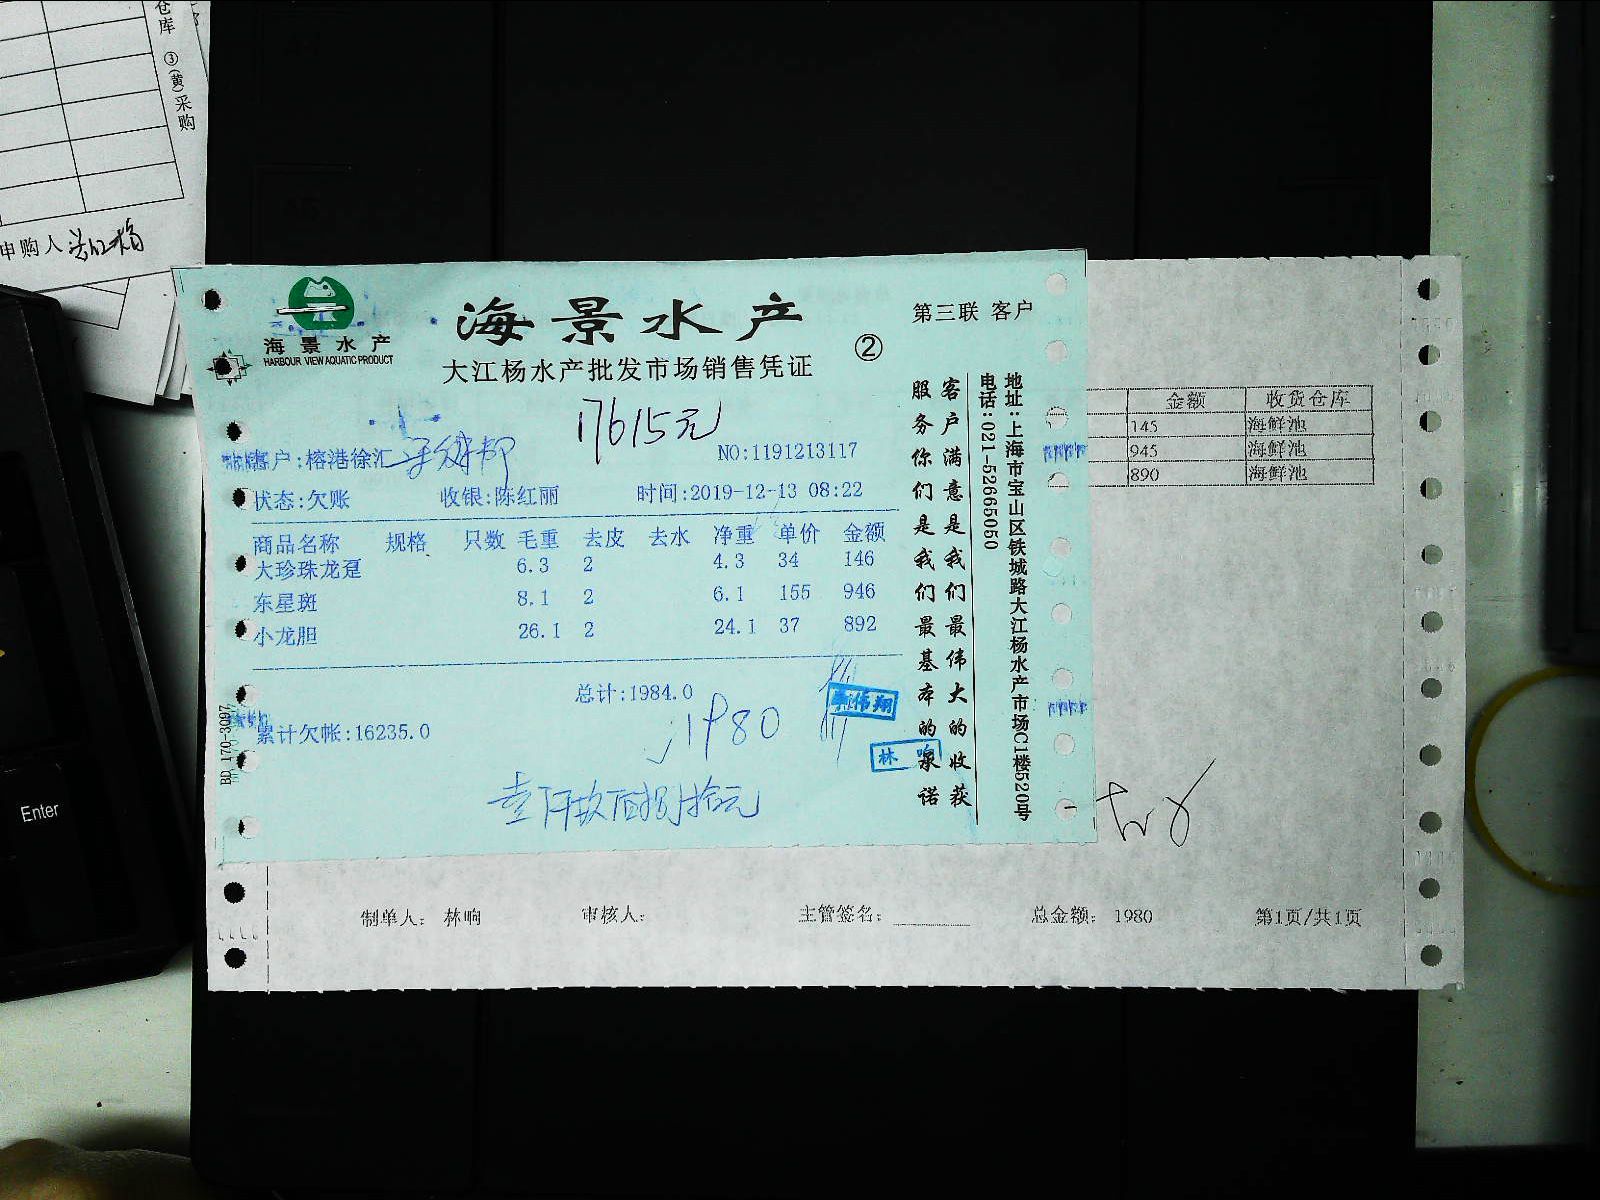 仓库 ③(黄)采购
申购人
海景水产
HARBOUR VIEW AQUATIC PRODUCT
海景水产
大江杨水产批发市场销售凭证
②
第三联 客户
17615元
客户:榕港徐汇
NO:1191213117
状态:欠账 收银:陈红丽 时间:2019-12-13 08:22
商品名称 规格 只数 毛重 去皮 去水 净重 单价 金额
大珍珠龙趸 6.3 2 4.3 34 146
东星斑 8.1 2 6.1 155 946
小龙胆 26.1 2 24.1 37 892
总计:1984.0
累计欠帐:16235.0
1980
壹仟玖佰捌拾元
林响
BD 170-3097
客户满意是我们最伟大的收获
服务你们是我们最基本的承诺
地址:上海市宝山区铁城路大江杨水产市场C1楼520号
电话:021-52665050
金额 收货仓库
145 海鲜池
945 海鲜池
890 海鲜池
制单人: 林响 审核人: 主管签名: 总金额: 1980 第1页/共1页
Enter